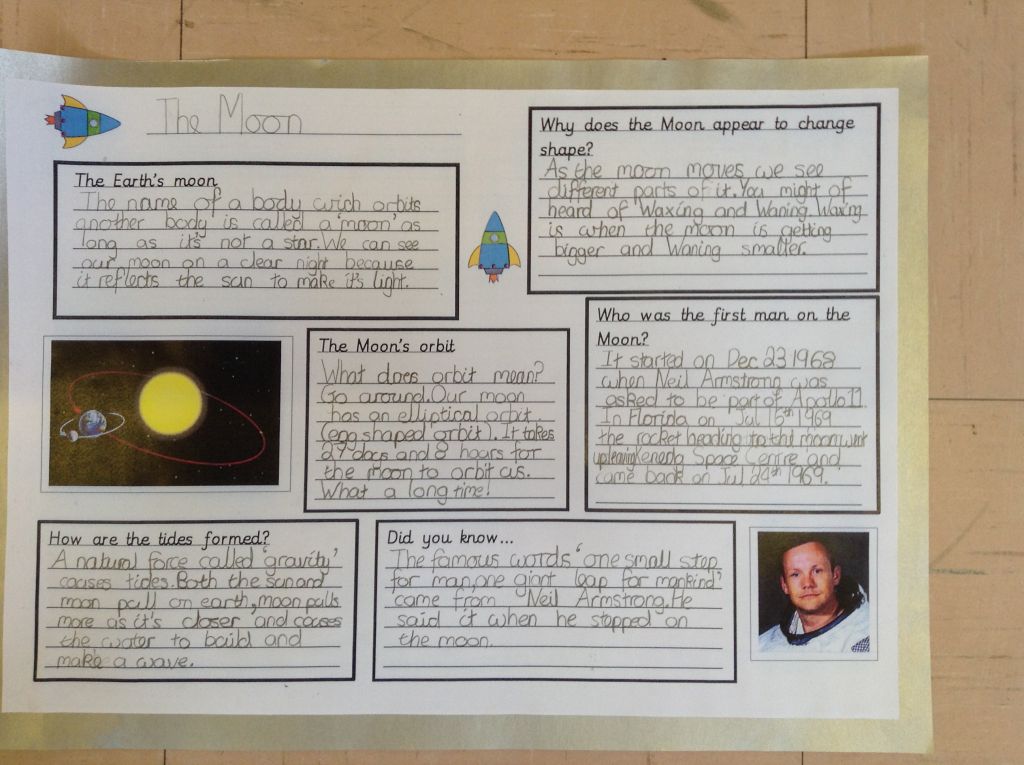 The Moon
The Earth's moon
The name of a body wich orbits
another body is called a 'moon' as
long as it's not a star. We can see
our moon on a clear night because
it reflects the sun to make it's light.
Why does the Moon appear to change
shape?
As the moon moves we see
different parts of it. You might of
heard of Waxing and Waning. Waxing
is when the moon is getting
bigger and Waning smaller.
The Moon's orbit
What does orbit mean?
Go around. Our moon
has an elliptical orbit
(egg shaped orbit). It takes
27 days and 8 hours for
the moon to orbit us.
What a long time!
Who was the first man on the
Moon?
It started on Dec 23 1968
when Neil Armstrong was
asked to be part of Apollo 11.
In Florida on Jul 16th 1969
the rocket heading to the moon went
up leaving Space Centre and
came back on Jul 24th 1969.
How are the tides formed?
A natural force called 'gravity'
causes tides. Both the sun and
moon pull on earth, moon pulls
more as it's closer and causes
the water to build and
make a wave.
Did you know...
The famous words 'one small step
for man, one giant leap for mankind'
came from Neil Armstrong. He
said it when he stepped on
the moon.